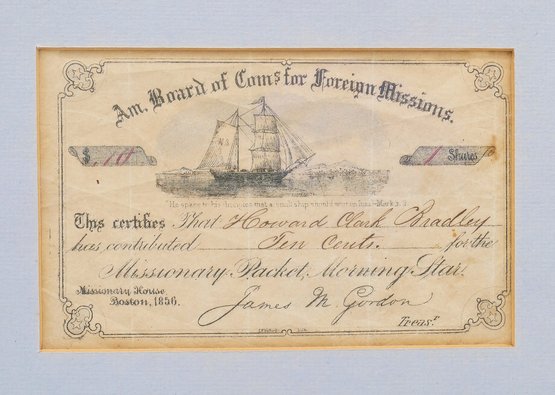 Am. Board of Coms for Foreign Missions.
$ .10
1 Shares
"He spake to his disciples that a small ship should wait on him." Mark 3. 9.
This certifies That Howard Clark Bradley
has contributed Ten Cents. for the
Missionary Packet, Morning Star.
Missionary House,
Boston, 1856.
James M. Gordon
Treasr.